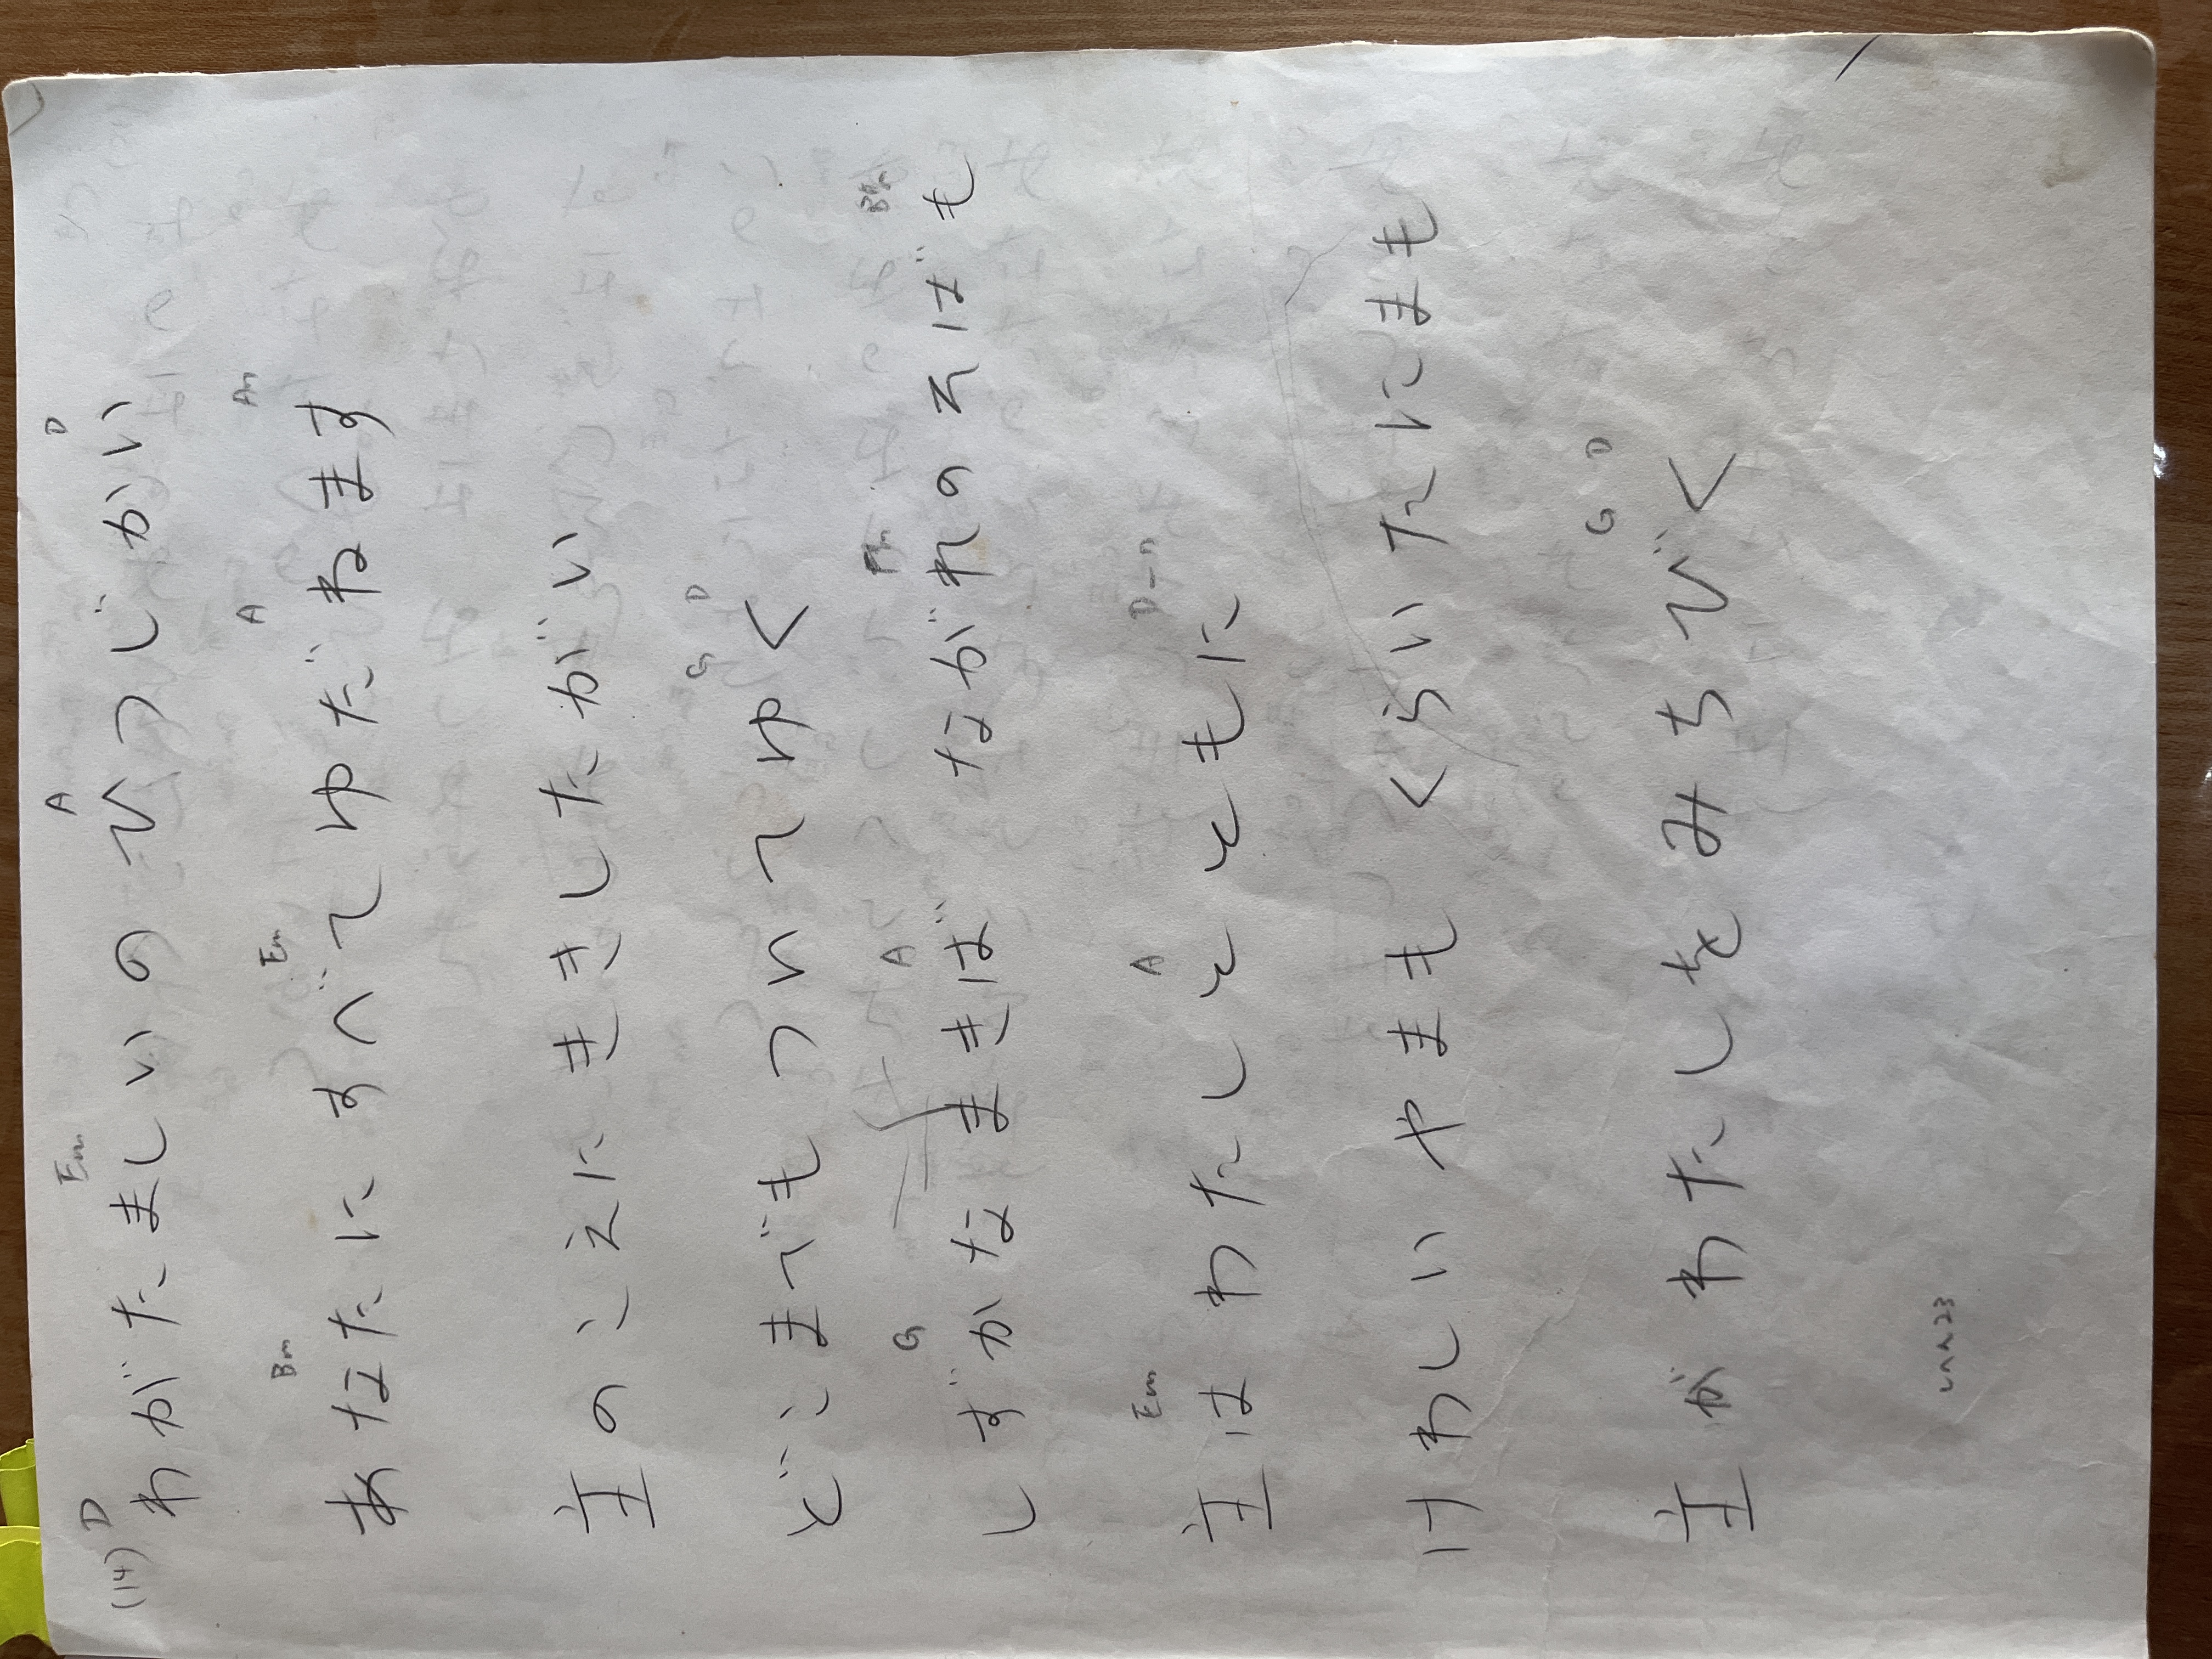 (14) D Em A D
わがたましいの ひつじかい
Bm Em A Am
あなたに すべて ゆだねます
主のこえに ききしたがい
G D
どこまでも ついてゆく
G A Bm
しずかな まきば ながれのそばも
Em A D
主は わたしと ともに
けわしい やまも くらい たにまも
G D
主が わたしを みちびく